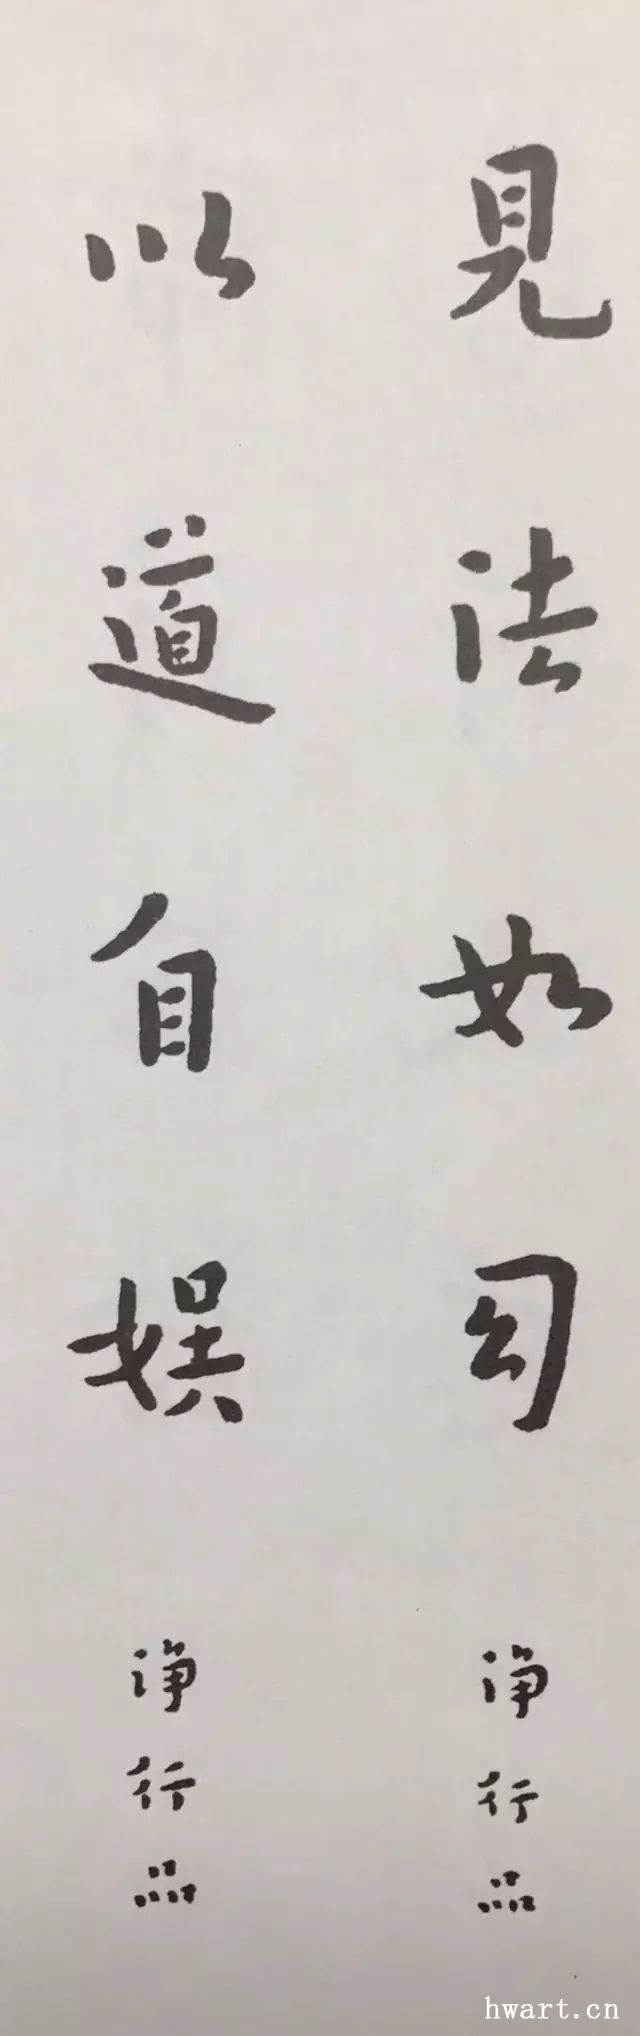 見法如幻
净行品
以道自娱
净行品
hwart.cn